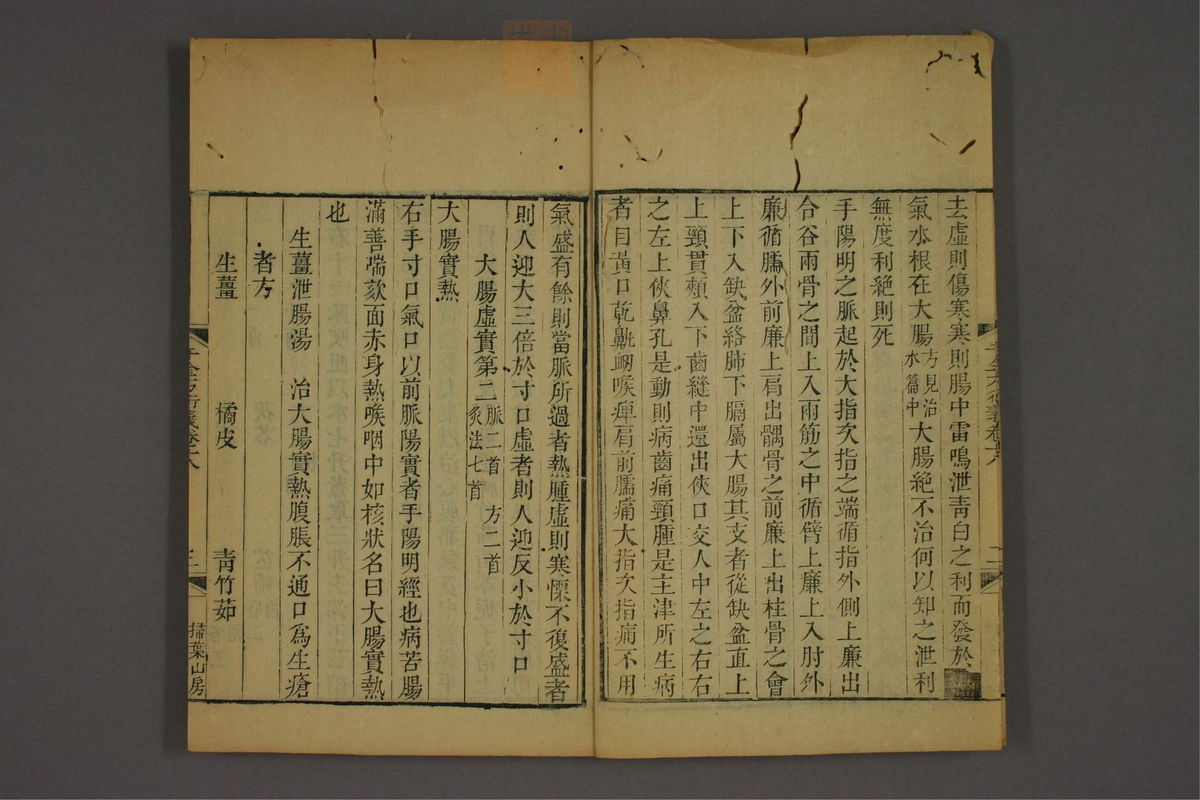 去虛則傷寒寒則腸中雷鳴泄靑白之利而發於
氣水根在大腸方見治水篇中大腸絶不治何以知之泄利
無度利絶則死
手陽明之脈起於大指次指之端循指外側上廉出
合谷兩骨之間上入兩筋之中循臂上廉上入肘外
廉循臑外前廉上肩出髃骨之前廉上出柱骨之會
上下入缺盆絡肺下膈屬大腸其支者從缺盆直上
上頸貫頰入下齒縫中還出俠口交人中左之右右
之左上俠鼻孔是動則病齒痛頸腫是主津所生病
者目黃口乾鼽衂喉痺肩前臑痛大指次指痛不用
氣盛有餘則當脈所過者熱腫虛則寒慄不復盛者
則人迎大三倍於寸口虛者則人迎反小於寸口
大腸虛實第二脈二首方二首灸法七首
大腸實熱
右手寸口氣口以前脈陽實者手陽明經也病苦腸
滿善喘欬面赤身熱喉咽中如核狀名曰大腸實熱
也
生薑泄腸湯 治大腸實熱腹脹不通口爲生瘡
者方
生薑 橘皮 靑竹茹
三 掃葉山房